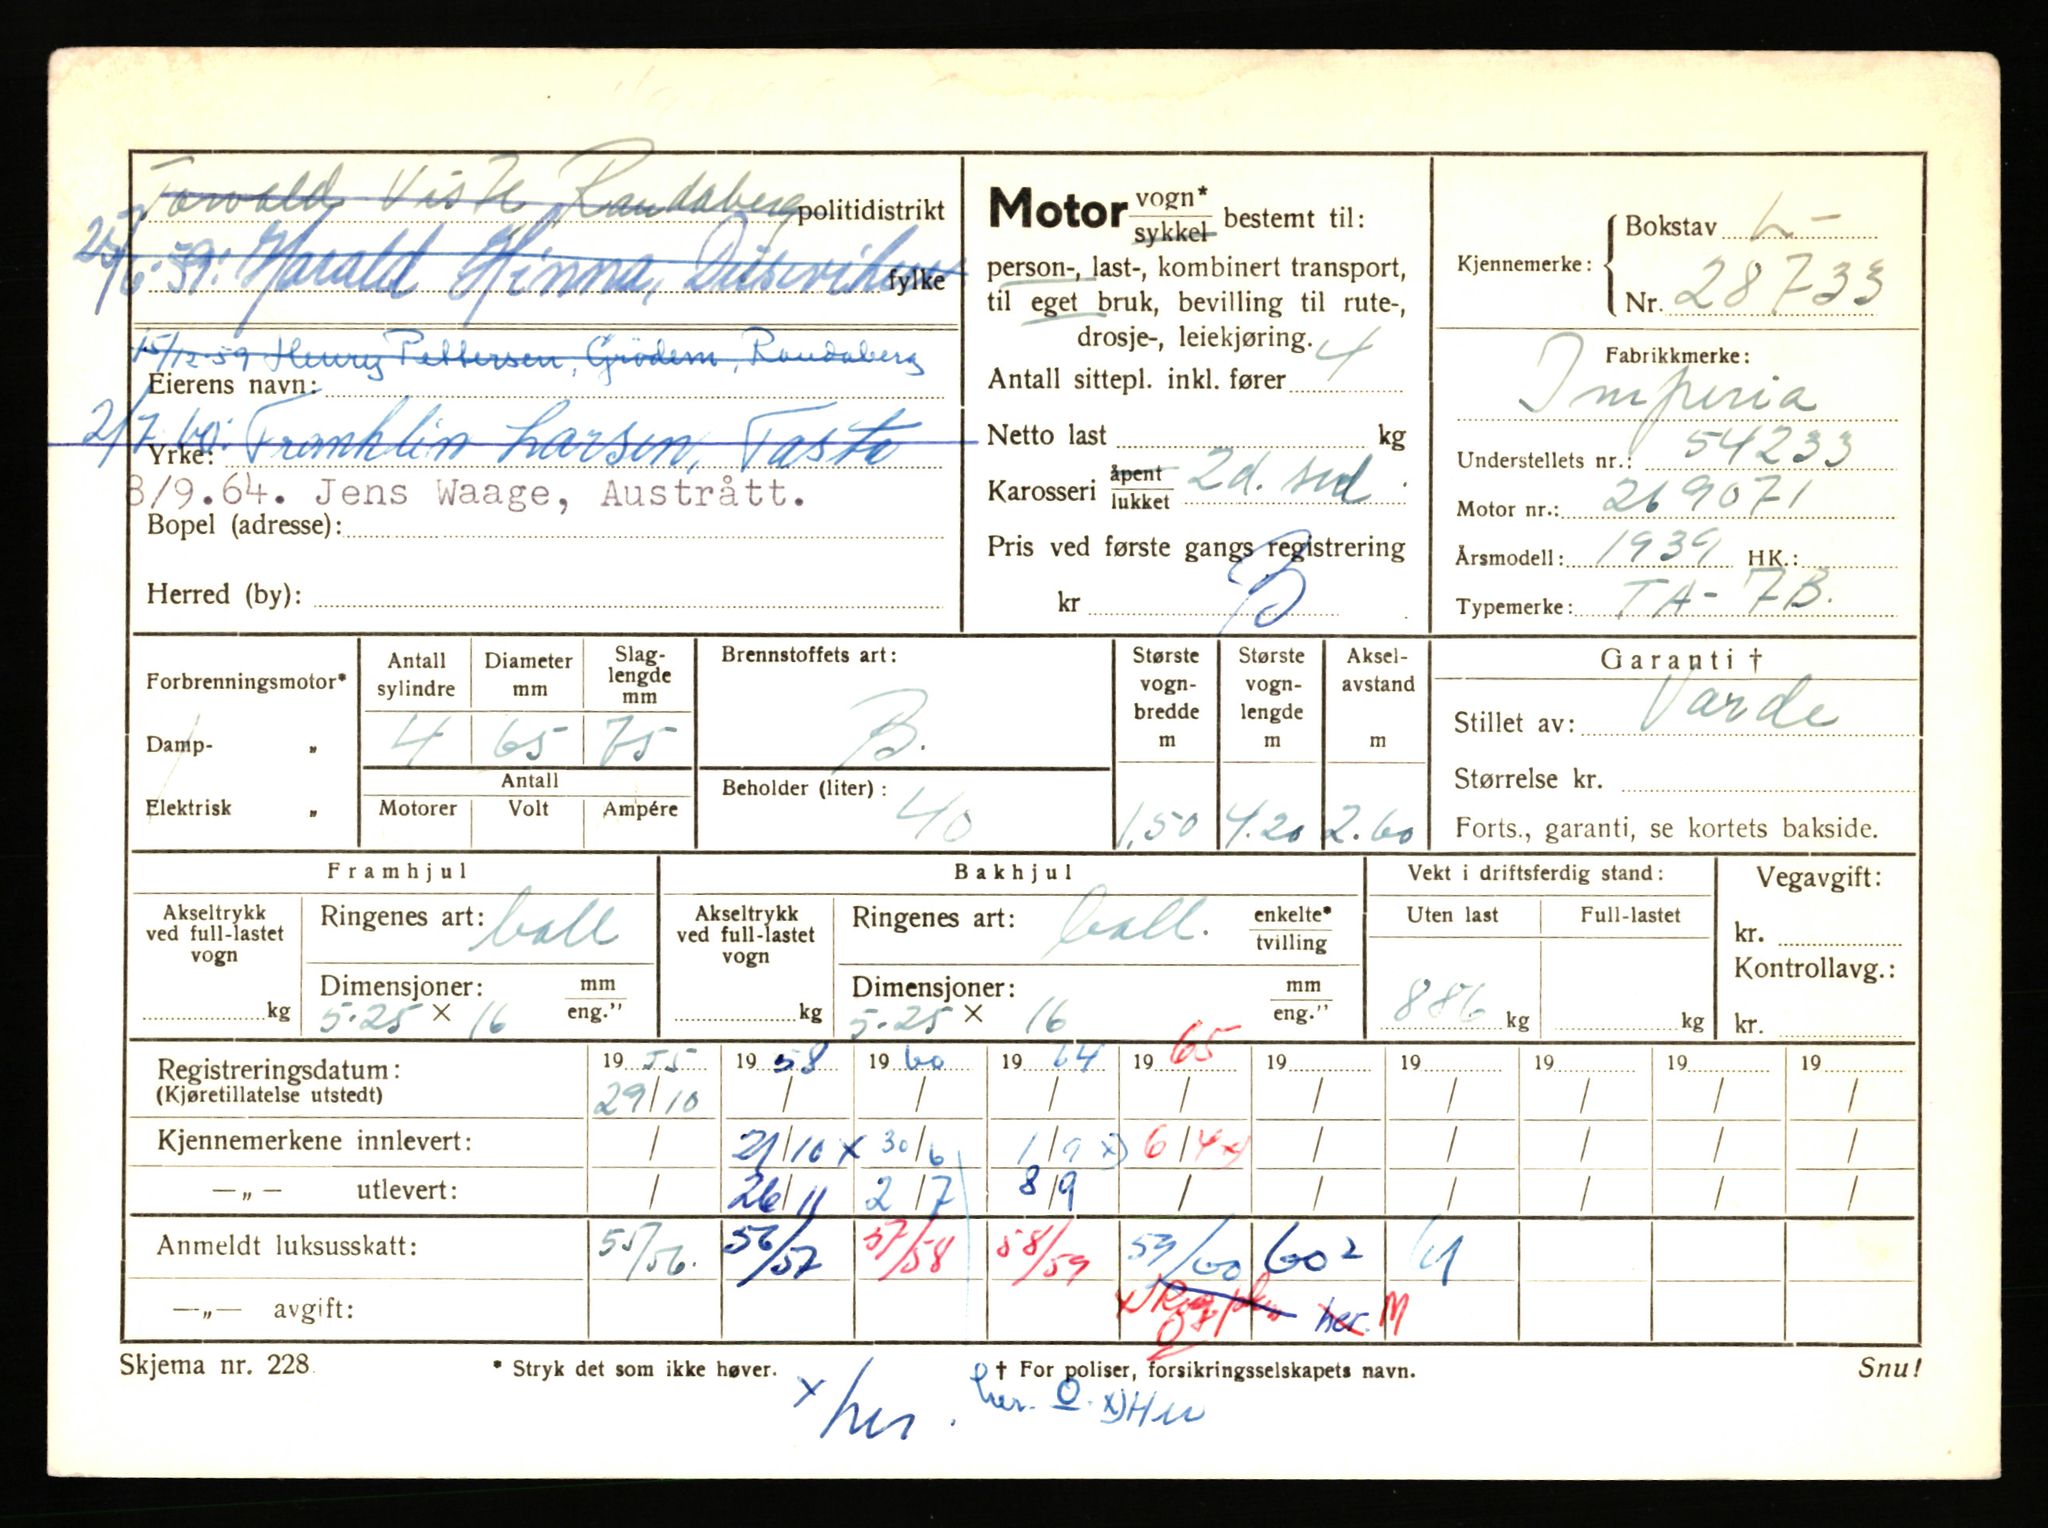 Torvald Viste Randaberg politidistrikt
25/6.59: Harald Hinna, fylke
15/12-59 Henry Pettersen, Grödem, Randaberg
Eierens navn:
2/7.60: Franklin Larsen, Tasta
Yrke:
8/9.64. Jens Waage, Austrått.
Bopel (adresse):
Herred (by):
Motor vogn* / sykkel bestemt til:
person-, last-, kombinert transport,
til eget bruk, bevilling til rute-,
drosje-, leiekjøring.
Antall sittepl. inkl. fører 4
Netto last kg
Karosseri åpent / lukket 2d. sed.
Pris ved første gangs registrering
kr B
Kjennemerke: Bokstav L-
Nr. 28733
Fabrikkmerke:
Imperia
Understellets nr.: 54233
Motor nr.: 269071
Årsmodell: 1939 HK.:
Typemerke: TA-7B.
Forbrenningsmotor*
Damp- „
Elektrisk „
Antall sylindre 4
Diameter mm 65
Slag-lengde mm 75
Antall
Motorer Volt Ampére
Brennstoffets art:
B.
Beholder (liter): 40
Største vogn-bredde m 1,50
Største vogn-lengde m 4.20
Aksel-avstand m 2.60
Garanti †
Stillet av: Varde
Størrelse kr.
Forts., garanti, se kortets bakside.
Framhjul
Akseltrykk ved full-lastet vogn kg
Ringenes art: ball
Dimensjoner: mm / eng."
5.25 × 16
Bakhjul
Akseltrykk ved full-lastet vogn kg
Ringenes art: ball. enkelte* / tvilling
Dimensjoner: mm / eng."
5.25 × 16
Vekt i driftsferdig stand:
Uten last Full-lastet
886 kg kg
Vegavgift:
kr.
Kontrollavg.:
kr.
Registreringsdatum: 19 55 19 58 19 60 19 64 19 65 19 19 19 19 19
(Kjøretillatelse utstedt) 29/10 / / / / / / / / /
Kjennemerkene innlevert: / 21/10 x 30/6 1/9 x) 6/4 x) / / / / /
—„— utlevert: / 26/11 2/7 8/9 / / / / / /
Anmeldt luksusskatt: 55/56. 56/57 57/58 58/59 59/60 60² 61
—„— avgift: x) her. M
Skjema nr. 228
* Stryk det som ikke høver.
† For poliser, forsikringsselskapets navn.
Snu!
x her.
her. O. x) Her